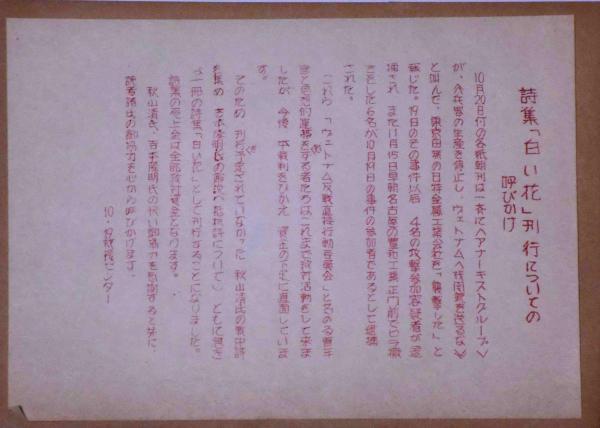 詩集「白い花」刊行についての
呼びかけ
10月20日付の各紙朝刊は一斉に〈アナーキストグループ〉
が、〈兵器の生産を停止し、ヴェトナムへ銃・弾を送るな〉
と叫んで、東京田無の日特金属工業会社を「襲撃した」と
報じた。19日のその事件以后、4名の攻撃参加容疑者が逮
捕され、また11月15日早朝名古屋の豊和工業正門前でビラ撒
きをした6名が10月19日の事件の参加者であるとして逮捕
された。
これら「ヴェトナム反戦直接行動委員会」とその名誉
と思想的連帯をする者たちはこれまで救対活動をして来ま
したが、今後、裁判をひかえ、資金の不足に直面していま
す。
そのため、刊行予定されていなかった、秋山清氏の戦中詩
を集め、吉本隆明氏の解説〈抵抗詩について〉、ともに包き
、一冊の詩集「白い花」として刊行することになりました。
詩集の売上金は全部救対資金となります。
秋山清氏、吉本隆明氏の快い御協力を感謝すると共に、
読者諸氏の御協力を心から呼びかけます。
10・19救援センター